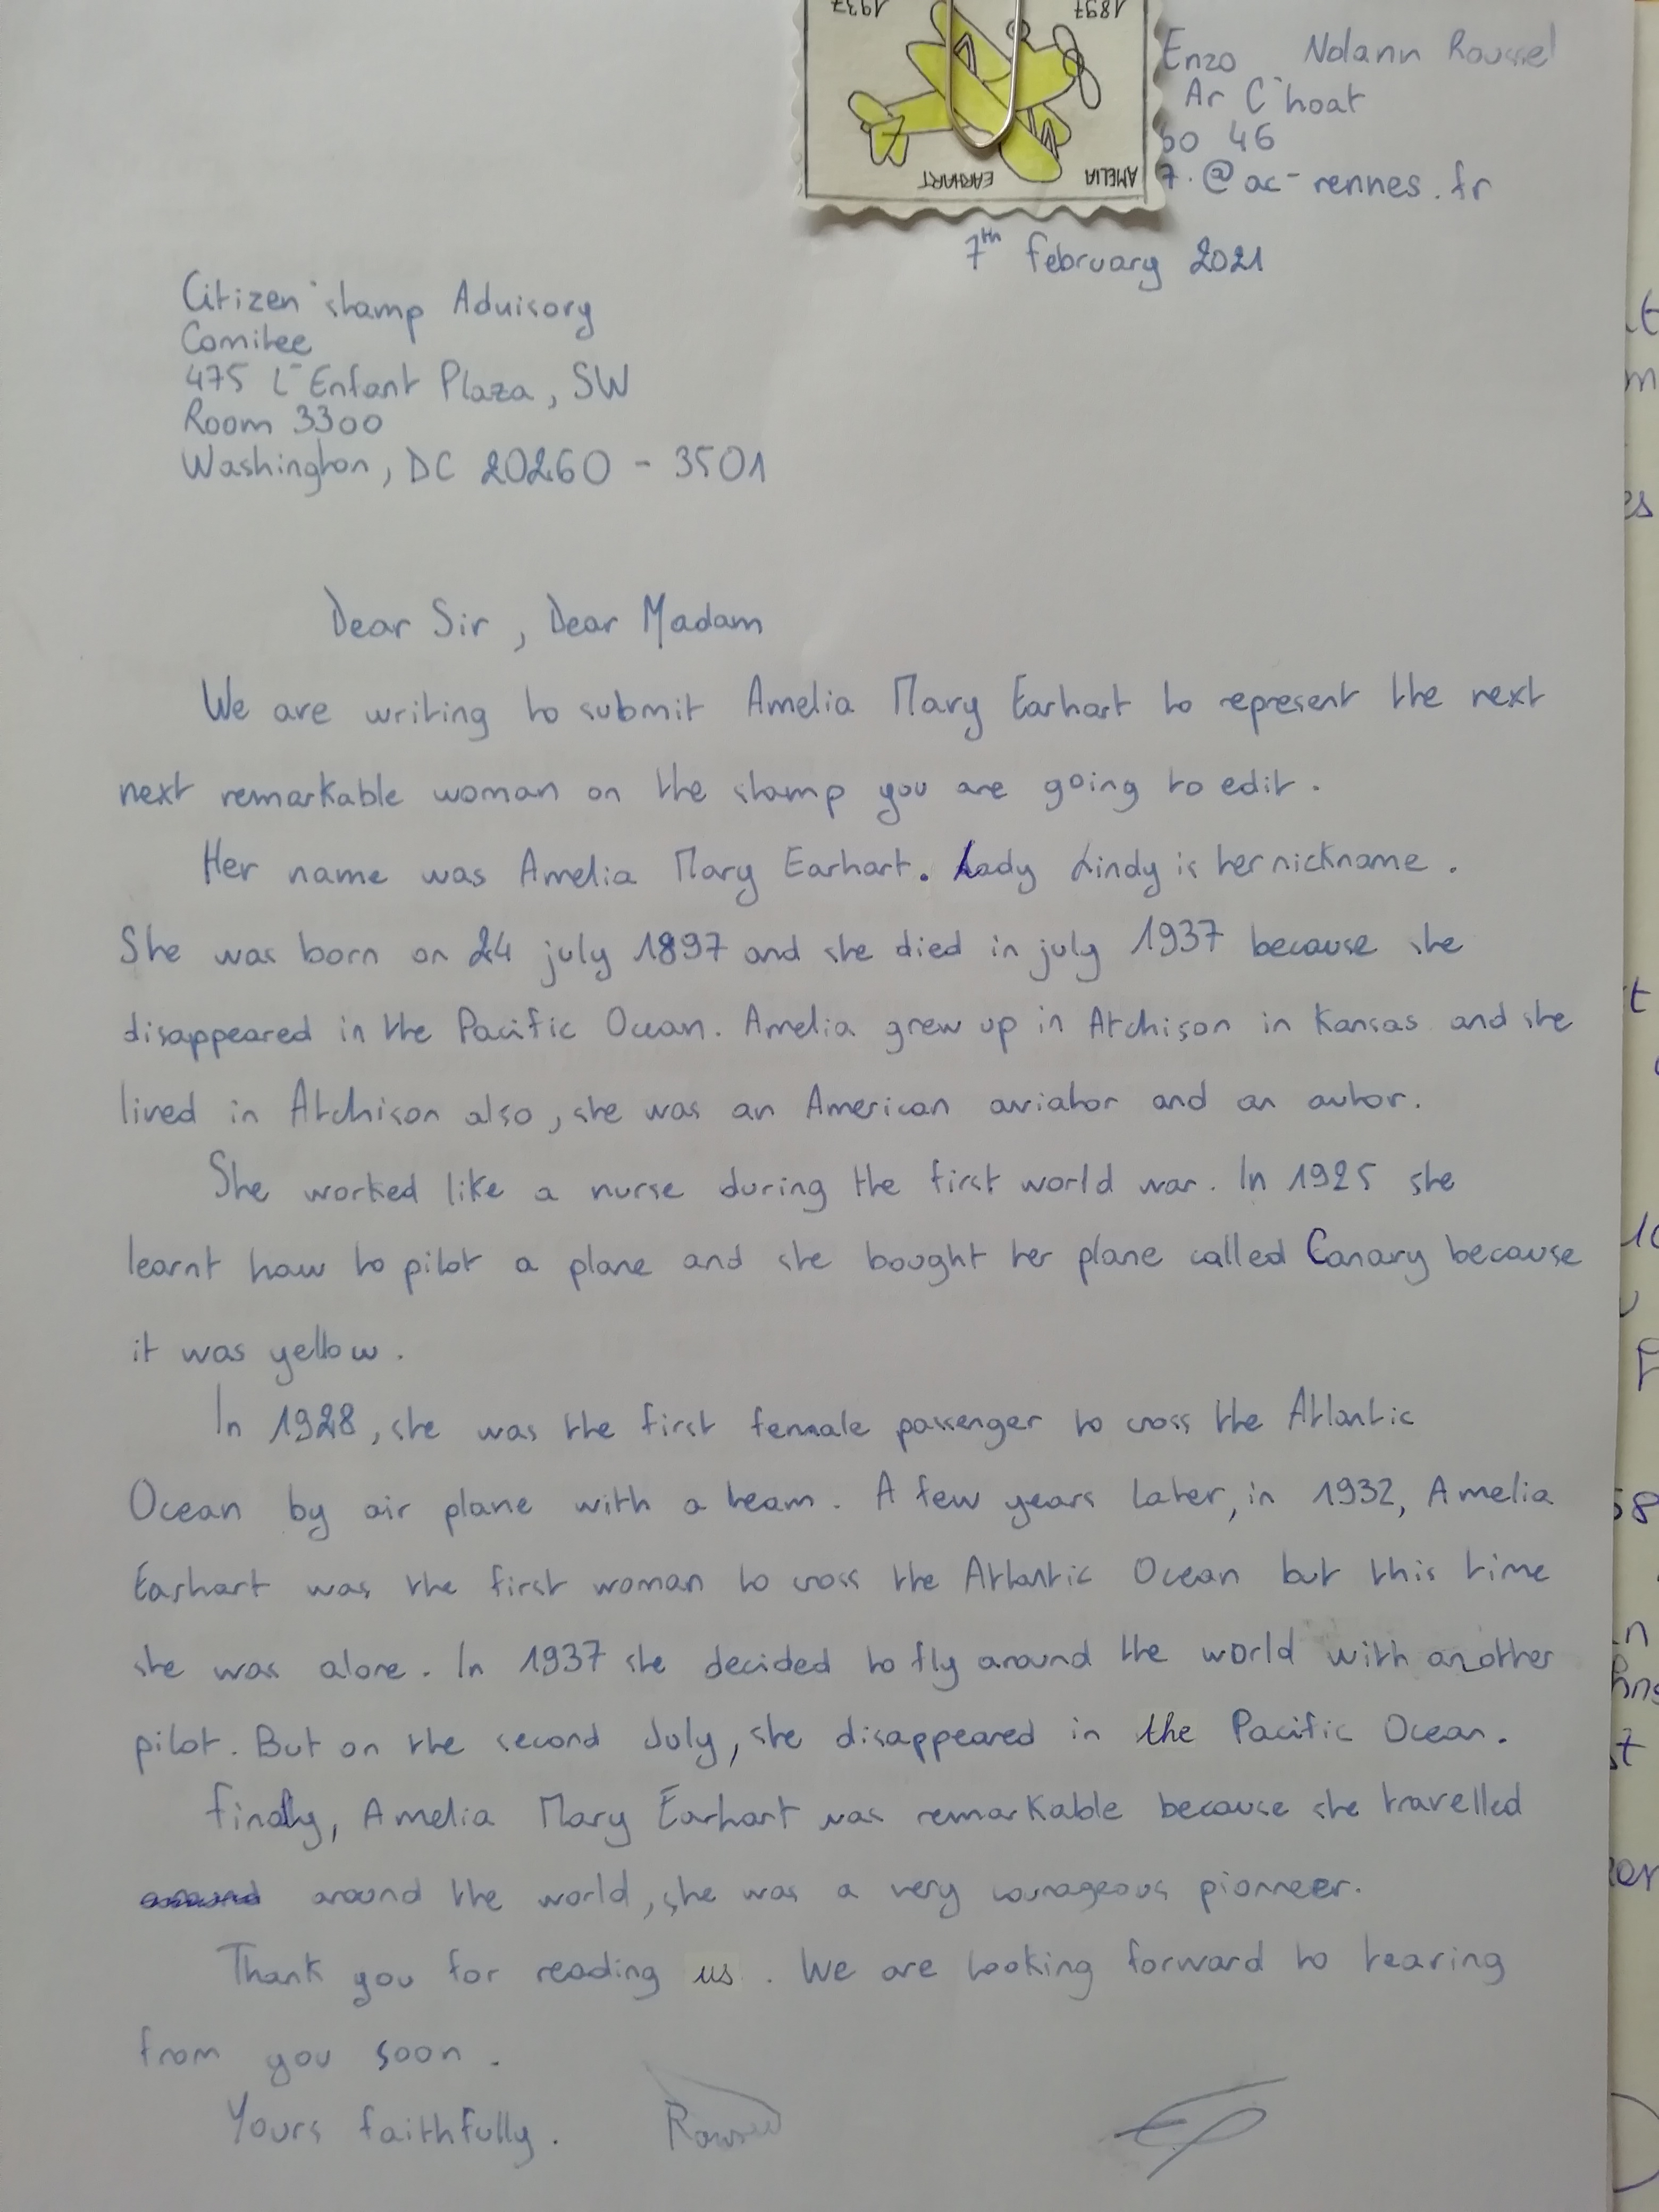 1937 1897
AMELIA EARHART
Enzo Nolann Roussel
Ar C'hoat
46
7.@ac-rennes.fr
7th february 2021
Citizen' stamp Advisory
Comitee
475 L'Enfant Plaza, SW
Room 3300
Washington, DC 20260 - 3501
Dear Sir, Dear Madam
We are writing to submit Amelia Mary Earhart to represent the next
next remarkable woman on the stamp you are going to edit.
Her name was Amelia Mary Earhart. Lady Lindy is her nickname.
She was born on 24 july 1897 and she died in july 1937 because she
disappeared in the Pacific Ocean. Amelia grew up in Atchison in Kansas and she
lived in Atchison also, she was an American aviator and an autor.
She worked like a nurse during the first world war. In 1925 she
learnt how to pilot a plane and she bought her plane called Canary because
it was yellow.
In 1928, she was the first female passenger to cross the Atlantic
Ocean by air plane with a team. A few years later, in 1932, Amelia
Earhart was the first woman to cross the Atlantic Ocean but this time
she was alone. In 1937 she decided to fly around the world with another
pilot. But on the second July, she disappeared in the Pacific Ocean.
finally, Amelia Mary Earhart was remarkable because she travelled
around the world, she was a very courageous pionneer.
Thank you for reading us. We are looking forward to hearing
from you soon.
Yours faithfully.